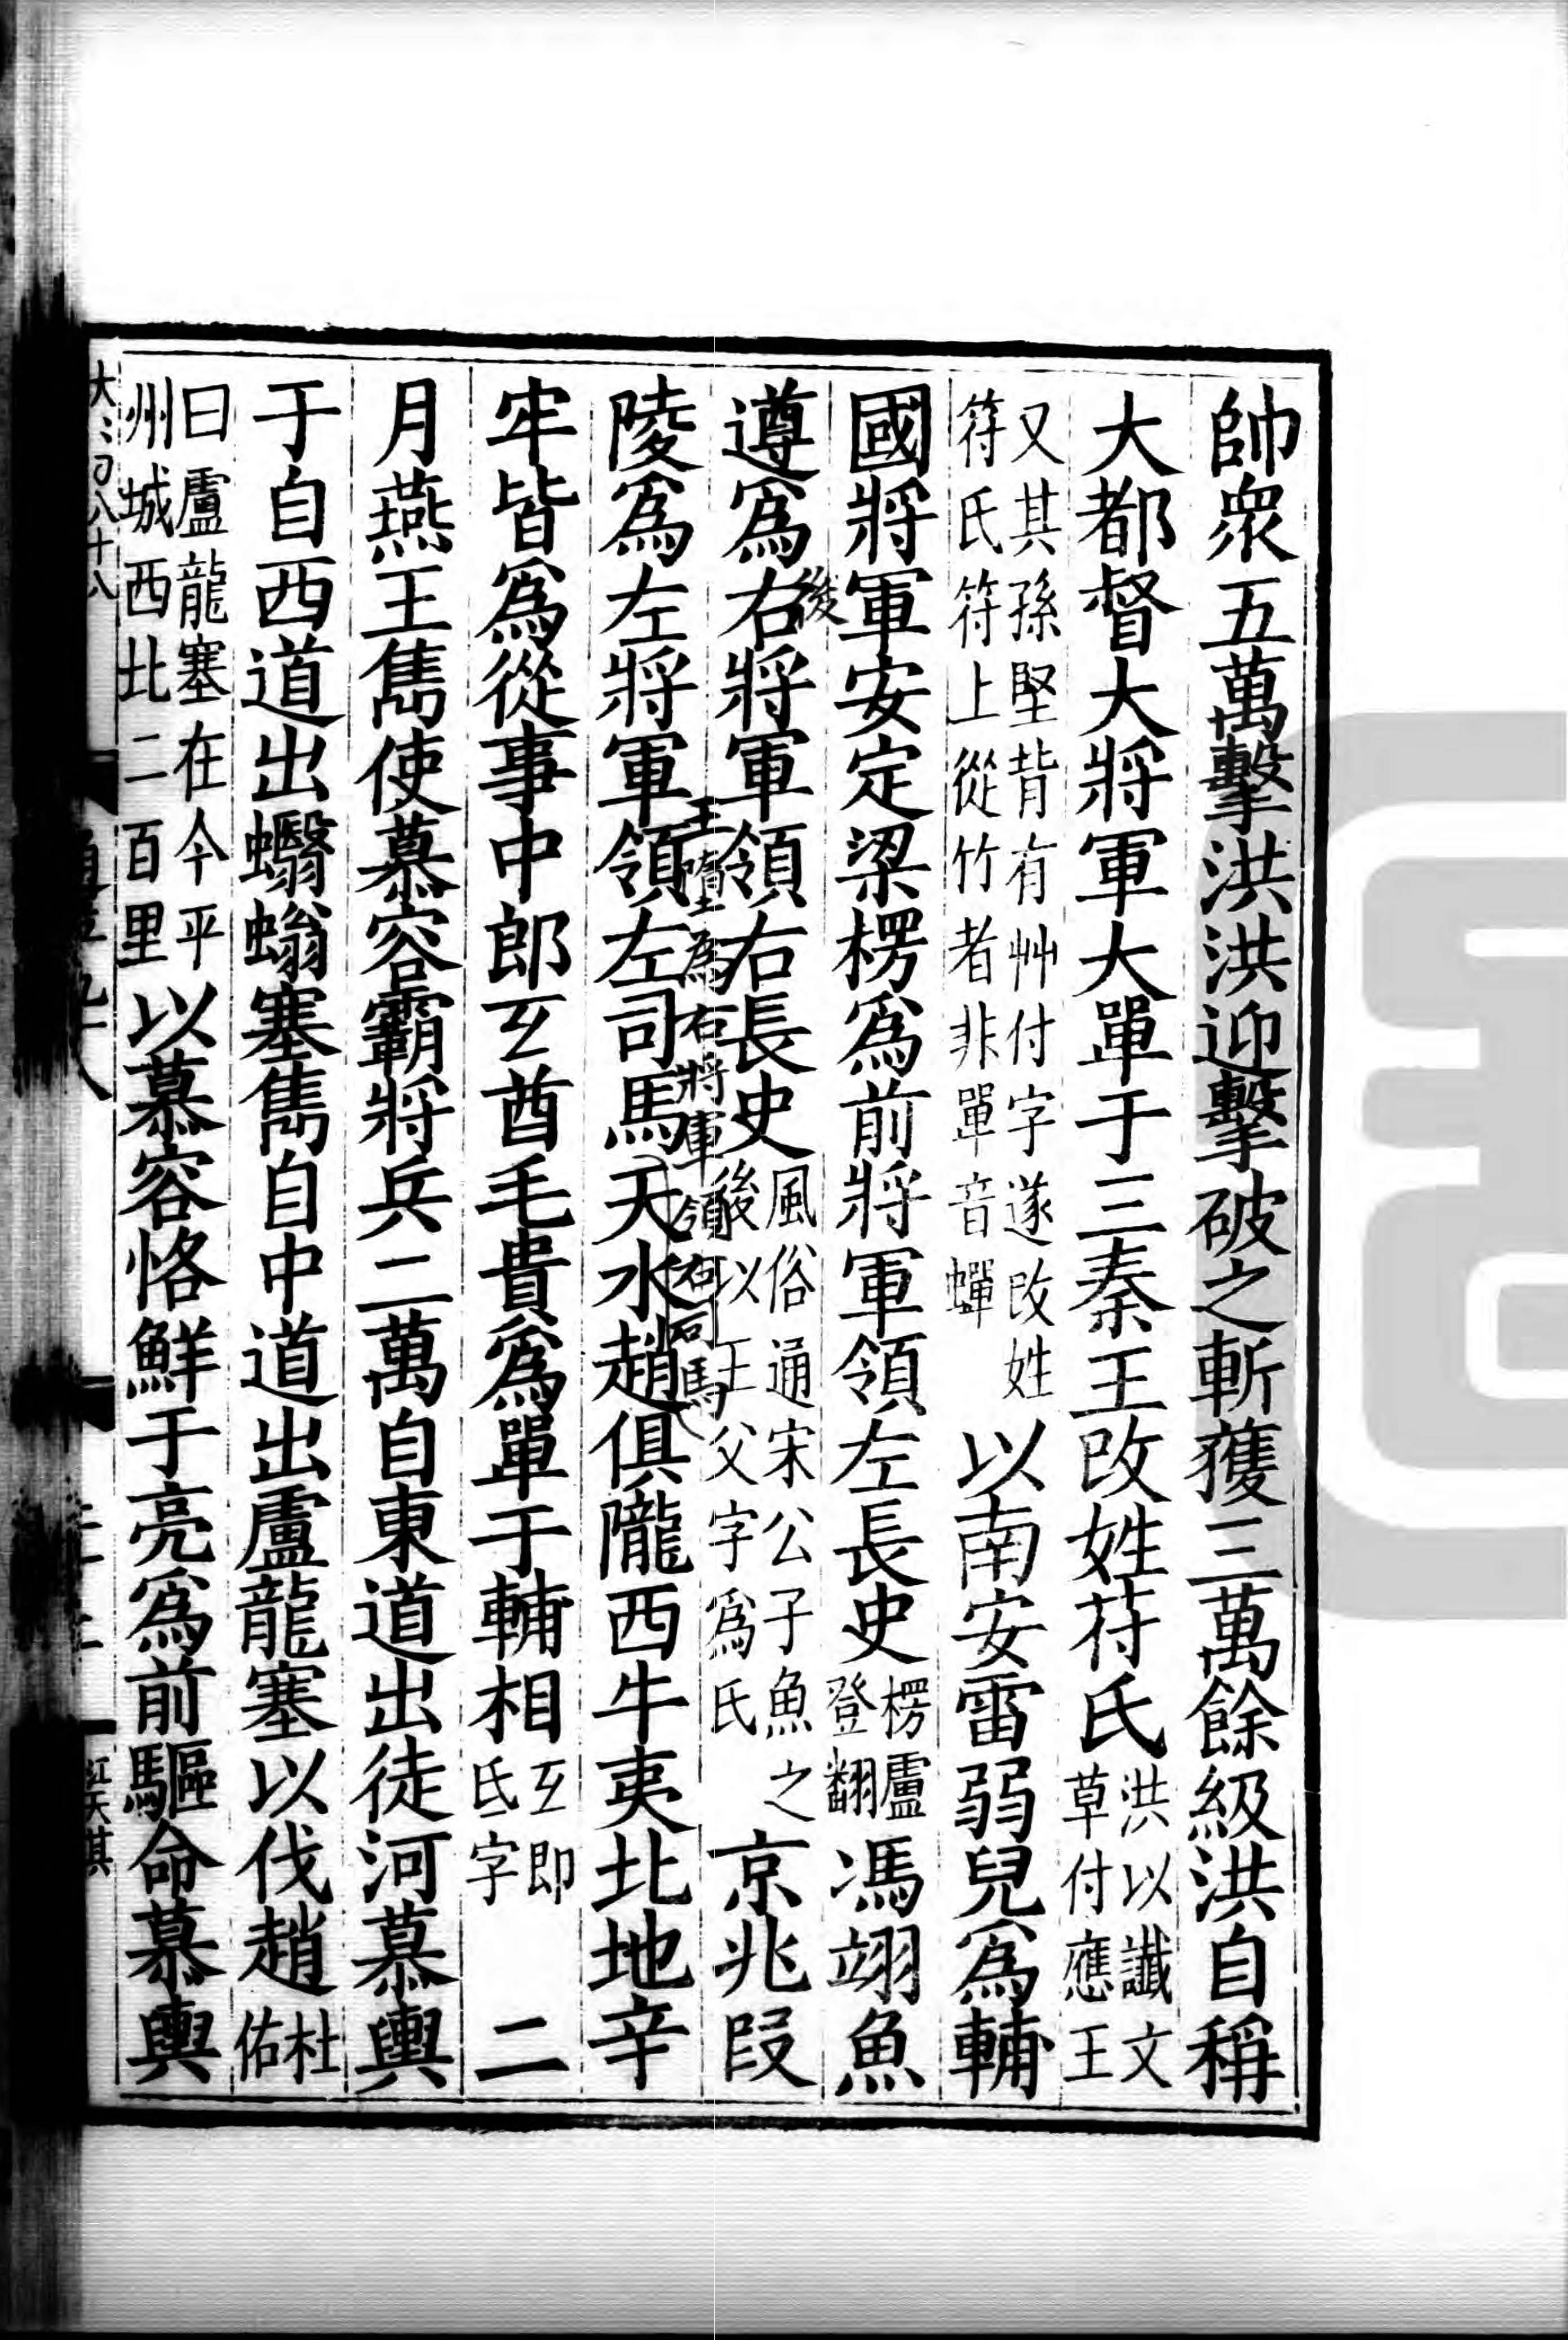 帥衆五萬擊洪洪迎擊破之斬獲三萬餘級洪自稱
大都督大將軍大單于三秦王改姓苻氏洪以讖文草付應王
又其孫堅背有艸付字遂改姓苻氏苻上從竹者非單音蟬以南安雷弱兒爲輔
國將軍安定梁楞爲前將軍領左長史楞盧登翻馮翊魚
遵爲右將軍領右長史風俗通宋公子魚之後以王父字爲氏京兆段
後
陵爲左將軍領左司馬天水趙俱隴西牛夷北地辛
王墮爲右將軍領右司馬
牢皆爲從事中郎互酋毛貴爲單于輔相互即氐字二
月燕王雋使慕容霸將兵二萬自東道出徒河慕輿
于自西道出蠮螉塞雋自中道出盧龍塞以伐趙杜佑
曰盧龍塞在今平州城西北二百里以慕容恪鮮于亮爲前驅命慕輿